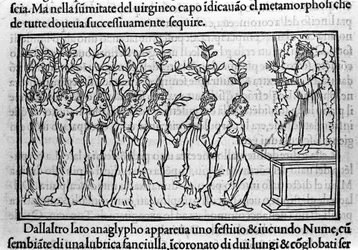 ſcia. Ma nella ſumitate del uirgineo capo ĩdicauão el metamorphoſi che
de tutte doueua ſucceſſiuamente ſequire.
Dallaltro lato anaglypho appareua uno feſtiuo & iucundo Nume, cũ
ſembiãte di una lubrica fanciulla, ĩcoronato di dui lungi & cõglobati